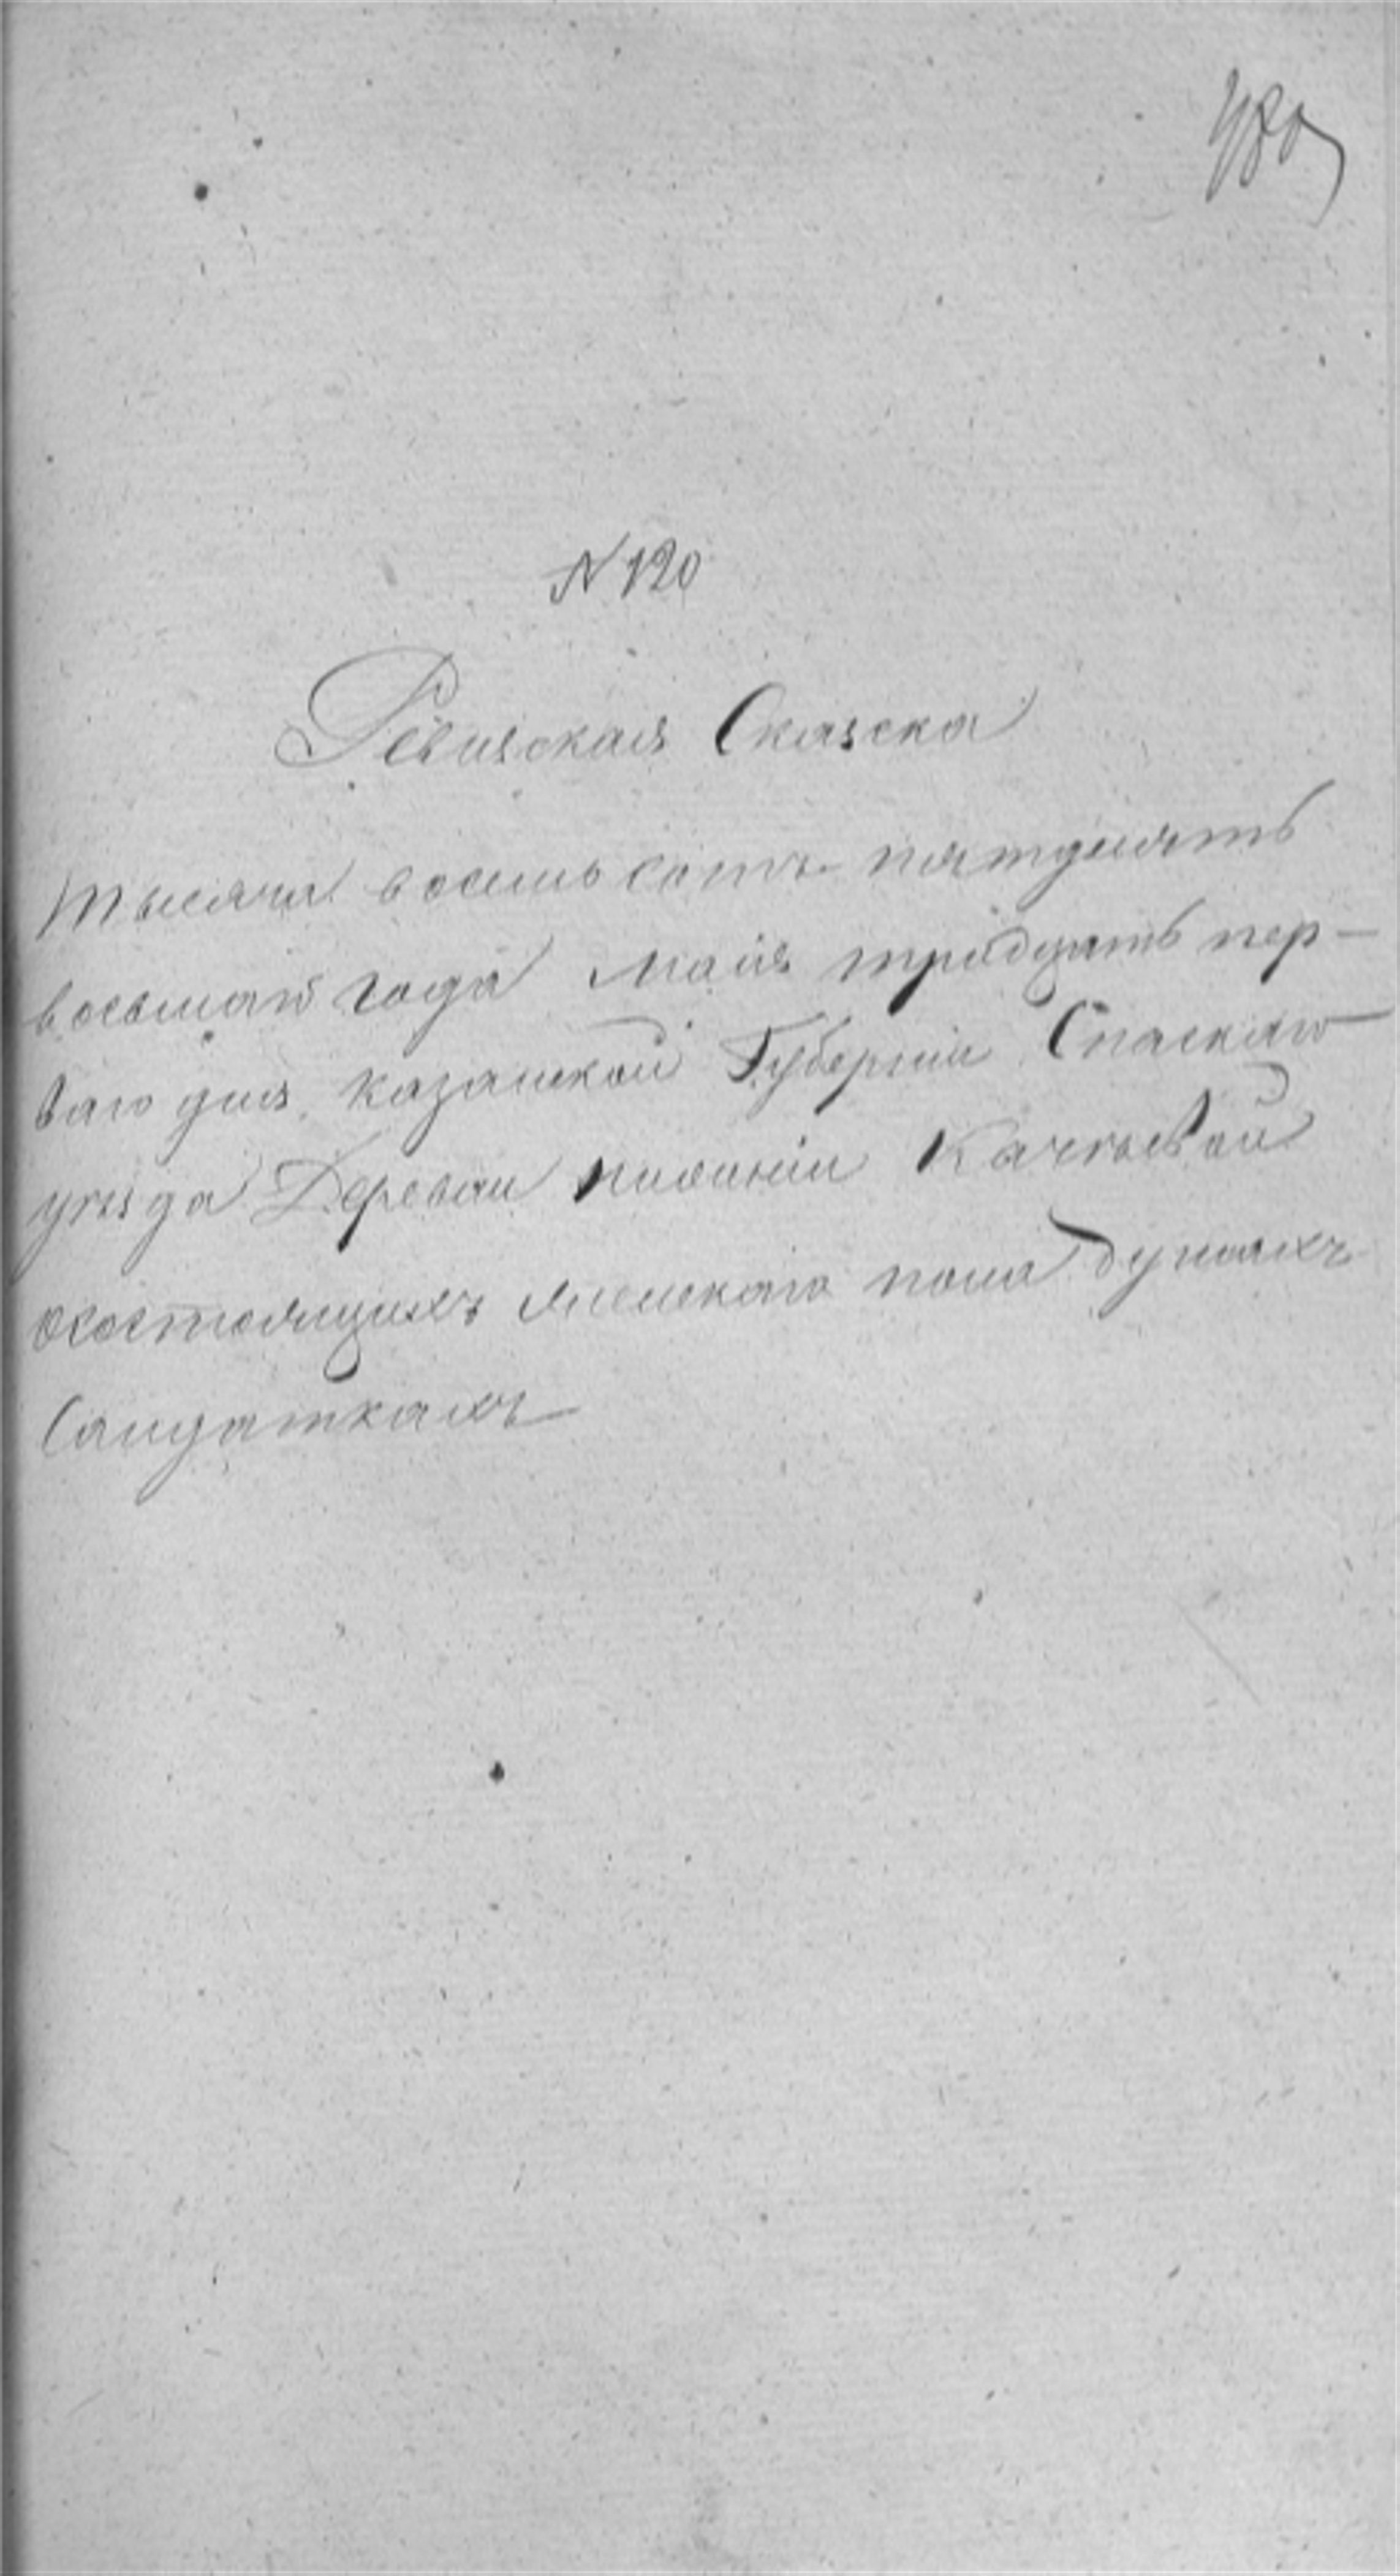 480
№ 120
Ревизская Сказска
тысяча восемь сотъ пятдцять
восьмаго года Маія тридцать пер-
ваго дня, казанской Губерніи Спаскаго
уѣзда Деревни нижніи Качѣевой
осостоящихъ женскаго пола душахъ
Салдаткахъ